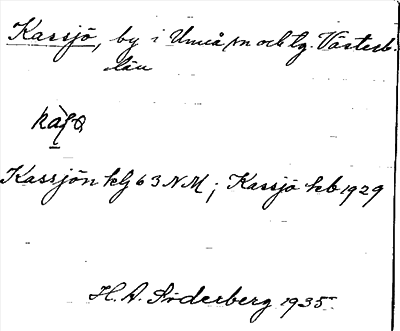 Kassjö, by i Umeå sn och lg. Västerb.
län
Kassjön klj 63 NM; Kassjö kb 1929
H. A. Söderberg 1935